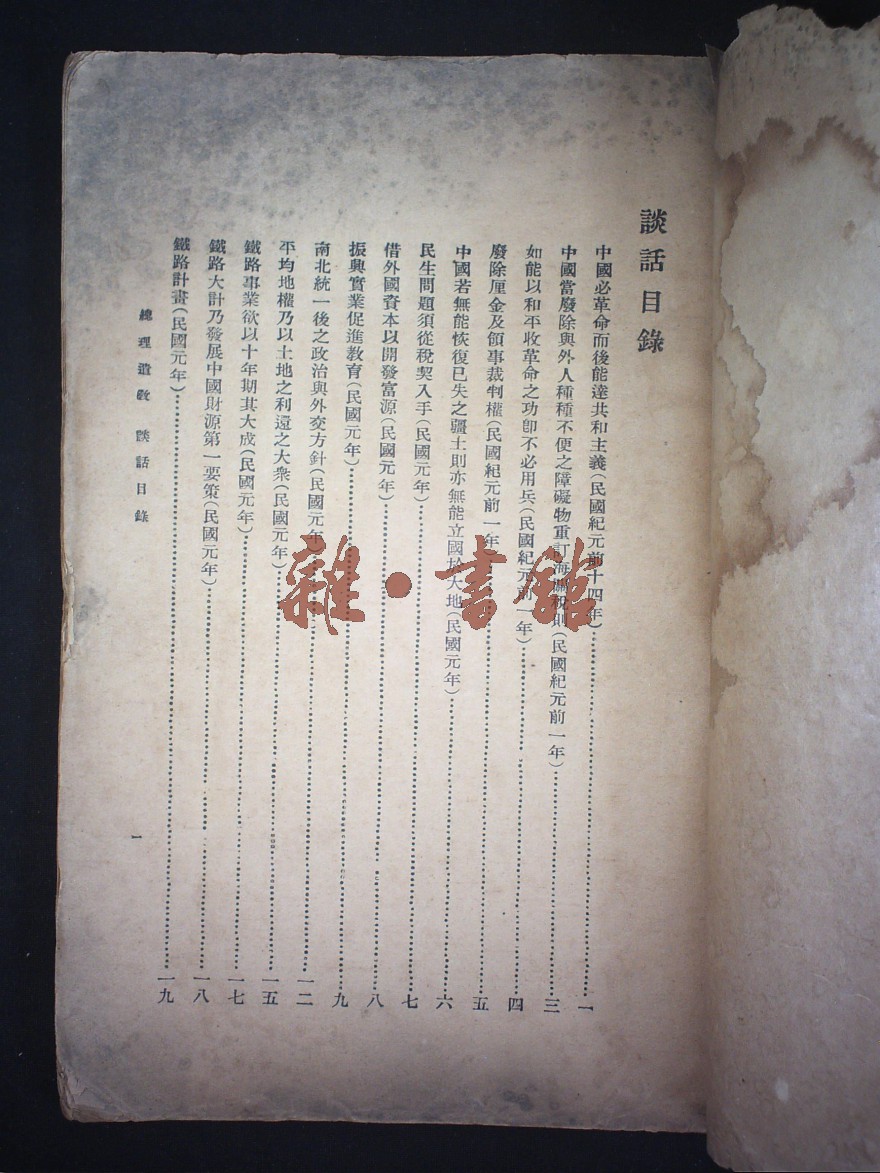 談話目錄
中國必革命而後能達共和主義(民國紀元前十四年)……一
中國當廢除與外人種種不便之障礙物重訂海關稅則(民國紀元前一年)……三
如能以和平收革命之功卽不必用兵(民國紀元前一年)……四
廢除厘金及領事裁判權(民國紀元前一年)……五
中國若無能恢復已失之疆土則亦無能立國於大地(民國元年)……六
民生問題須從稅契入手(民國元年)……七
借外國資本以開發富源(民國元年)……八
振興實業促進教育(民國元年)……九
南北統一後之政治與外交方針(民國元年)……一二
平均地權乃以土地之利還之大衆(民國元年)……一五
鐵路事業欲以十年期其大成(民國元年)……一七
鐵路大計乃發展中國財源第一要策(民國元年)……一八
鐵路計畫(民國元年)……一九
總理遺敎 談話目錄
一
雜·書館